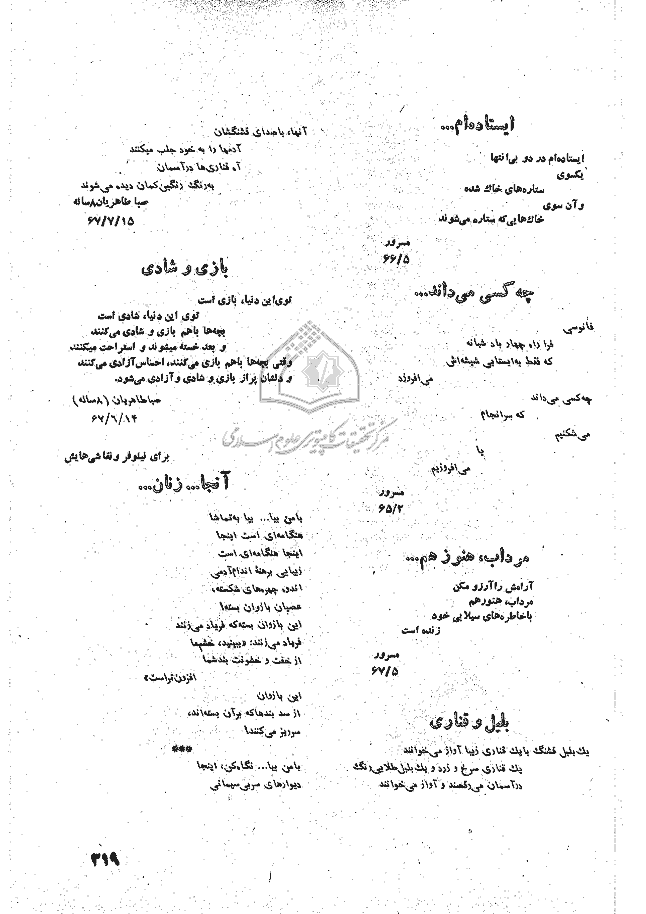 ایستاده‌ام...
ایستاده‌ام در دو بی‌انتها
یکسوی
ستاره‌های خاک شده
و آن سوی
خاک‌هایی که ستاره می‌شوند
مسرور
۶۶/۵
چه کسی می‌داند...
فانوسی
فرا راه چهار باد شبانه
که فقط به‌ایستایی شیشه‌اش
می‌افروزد
چه‌کسی می‌داند
که سرانجام
می‌شکنیم
یا
می‌افروزیم
مسرور
۶۵/۲
مرداب، هنوز هم...
آرامش را آرزو مکن
مرداب، هنوز هم
با خاطره‌های سیلابی خود
زنده است
مسرور
۶۷/۵
بلبل و قناری
یک بلبل قشنگ با یک قناری زیبا آواز می‌خوانند
یک قناری سرخ و زرد و یک بلبل طلایی رنگ
در آسمان می‌رقصند و آواز می‌خوانند
آنها، با صدای قشنگشان
آدمها را به خود جلب میکنند
آه قناری‌ها در آسمان
به‌رنگ رنگین‌کمان دیده می‌شوند
صبا طاهریان ۸ساله
۶۷/۷/۱۵
بازی و شادی
توی این دنیا، بازی است
توی این دنیا، شادی است
بچه‌ها باهم بازی و شادی می‌کنند
و بعد خسته میشوند و استراحت میکنند
وقتی بچه‌ها باهم بازی می‌کنند، احساس آزادی می‌کنند
و دلشان پر از بازی و شادی و آزادی می‌شود.
صبا طاهریان (۸ساله)
۶۷/۶/۱۴
برای نیلوفر و نقاشی‌هایش
آنجا... زنان...
بامن بیا... بیا به‌تماشا
هنگامه‌ای است اینجا
اینجا هنگامه‌ای است
زیبایی برهنهٔ اندام‌آدمی
اندوه چهره‌های شکسته،
عصیان بازوان بسته!
این بازوان بسته‌که فریاد می‌زنند
فریاد می‌زنند: «ببینید، خشم‌ما
از خفت و خشونت بندشما
افزون‌تراست»
این بازوان
از سد بندها که برآن بسته‌اند،
سرریز می‌کنند!
***
بامن بیا... نگاه‌کن، اینجا
دیوارهای سربی‌سیمانی
مرکز تحقیقات کامپیوتری علوم اسلامی
۳۱۹